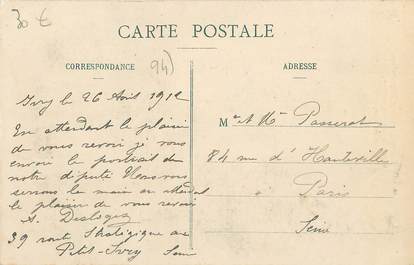 30 €
CARTE POSTALE
CORRESPONDANCE
94)
ADRESSE
Ivry le 26 Aoit 1912
En attendant le plaisir
de vous revoir je vous
envoi le portrait de
notre député Nous vous
serrons la main en attendant
le plaisir de vous revoir
A. Desloges
39 route Stratégique au
Petit-Ivry Seine
Mr et Me Passerat
84 rue d'Hauteville
à Paris
Seine